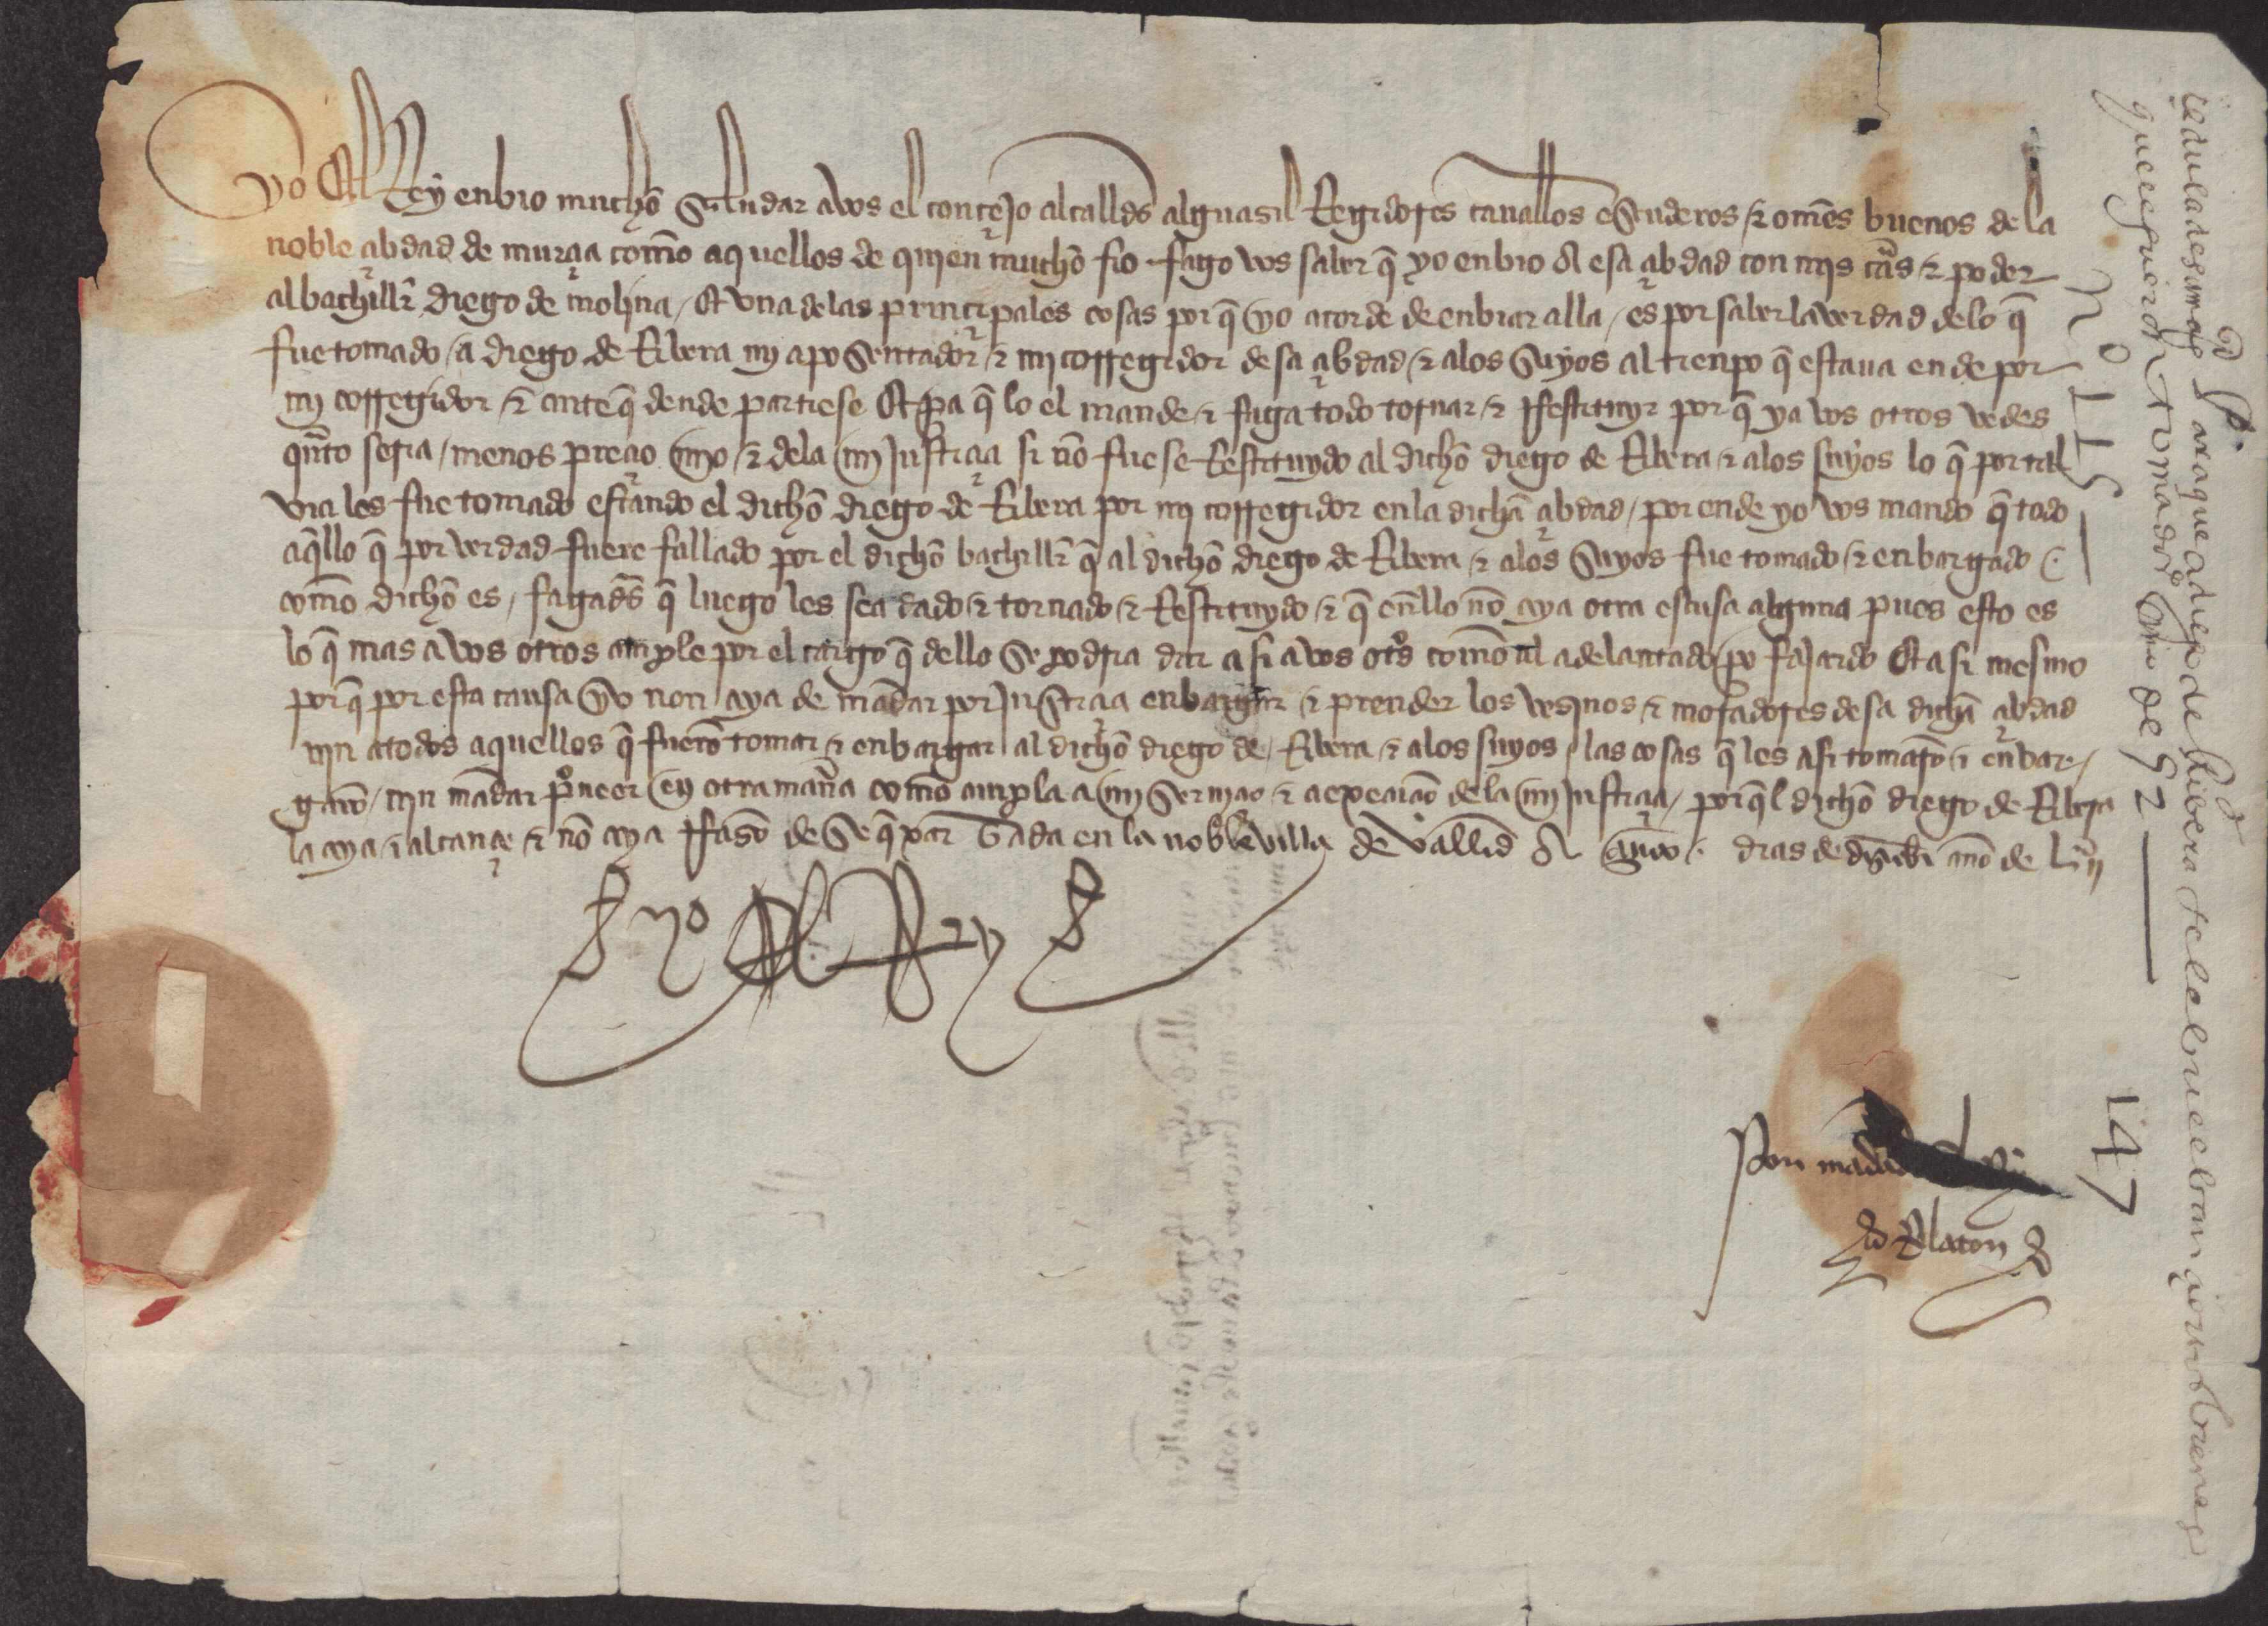 Yo El Rey enbio mucho saludar a vos el conçejo alcalldes alguasil Regidores caualleros escuderos & omes buenos de la
noble çibdad de murçia como aquellos de quien mucho fio fago vos saber q̃ yo enbio A esa çibdad con mis cartas & poder
al bachiller diego de molina / Et vna de las prinçipales cosas por q̃ yo acorde de enbiar alla / es por saber la verdad de lo q̃
fue tomado / a diego de Ribera mi aposentador & mi corregidor desa çibdad / & a los suyos al tienpo q̃ estaua ende por
mi corregidor / & ante q̃ dende partiese Et pa q̃ lo el mande & faga todo tornar & Restituyr por q̃ ya vos otros vedes
quãto seria / menospreçio mio / & de la mi Justiçia si nõ fuese Restituydo al dicho diego de Ribera & a los suyos lo q̃ por tal
via les fue tomado estando el dicho diego de Ribera por mi corregidor en la dicha çibdad / por ende yo vos mando q̃ todo
aq̃llo q̃ por verdad fuere fallado por el dicho bachiller q̃ al dicho diego de Ribera & a los suyos fue tomado & enbargado
como dicho es / fagades q̃ luego les sea dado & tornado & Restituydo & q̃ en ello nõ aya otra escusa alguna pues esto es
lo q̃ mas a vos otros cunple por el cargo q̃ dello se podria dar asi a vos otros como al adelantado pº fajardo Et asi mesmo
por q̃ por esta causa yo non aya de mãdar por Justiçia enbargar & prender los vesinos & moradores desa dicha çibdad
nin a todos aquellos q̃ fuerõ tomar & enbargar al dicho diego de Ribera & a los suyos / las cosas q̃ les asi tomarõ & enbar
garõ / nin mãdar proueer en otra manera como cunpla a mi seruiçio & a execuçiõ de la mi Justiçia / por q̃l dicho diego de Ribera
la aya & alcançe & nõ aya Rasõ de se q̃xar Dada en la noble villa de vallid A çinco dias de disiebr año de Lii
Yo El Rey
Por mandado del Rey
Relator
Cedula de su magd para que a diego de Ribera se le buelban çiertos bienes
que le fueron tomados Año de 52
Nº 115
147